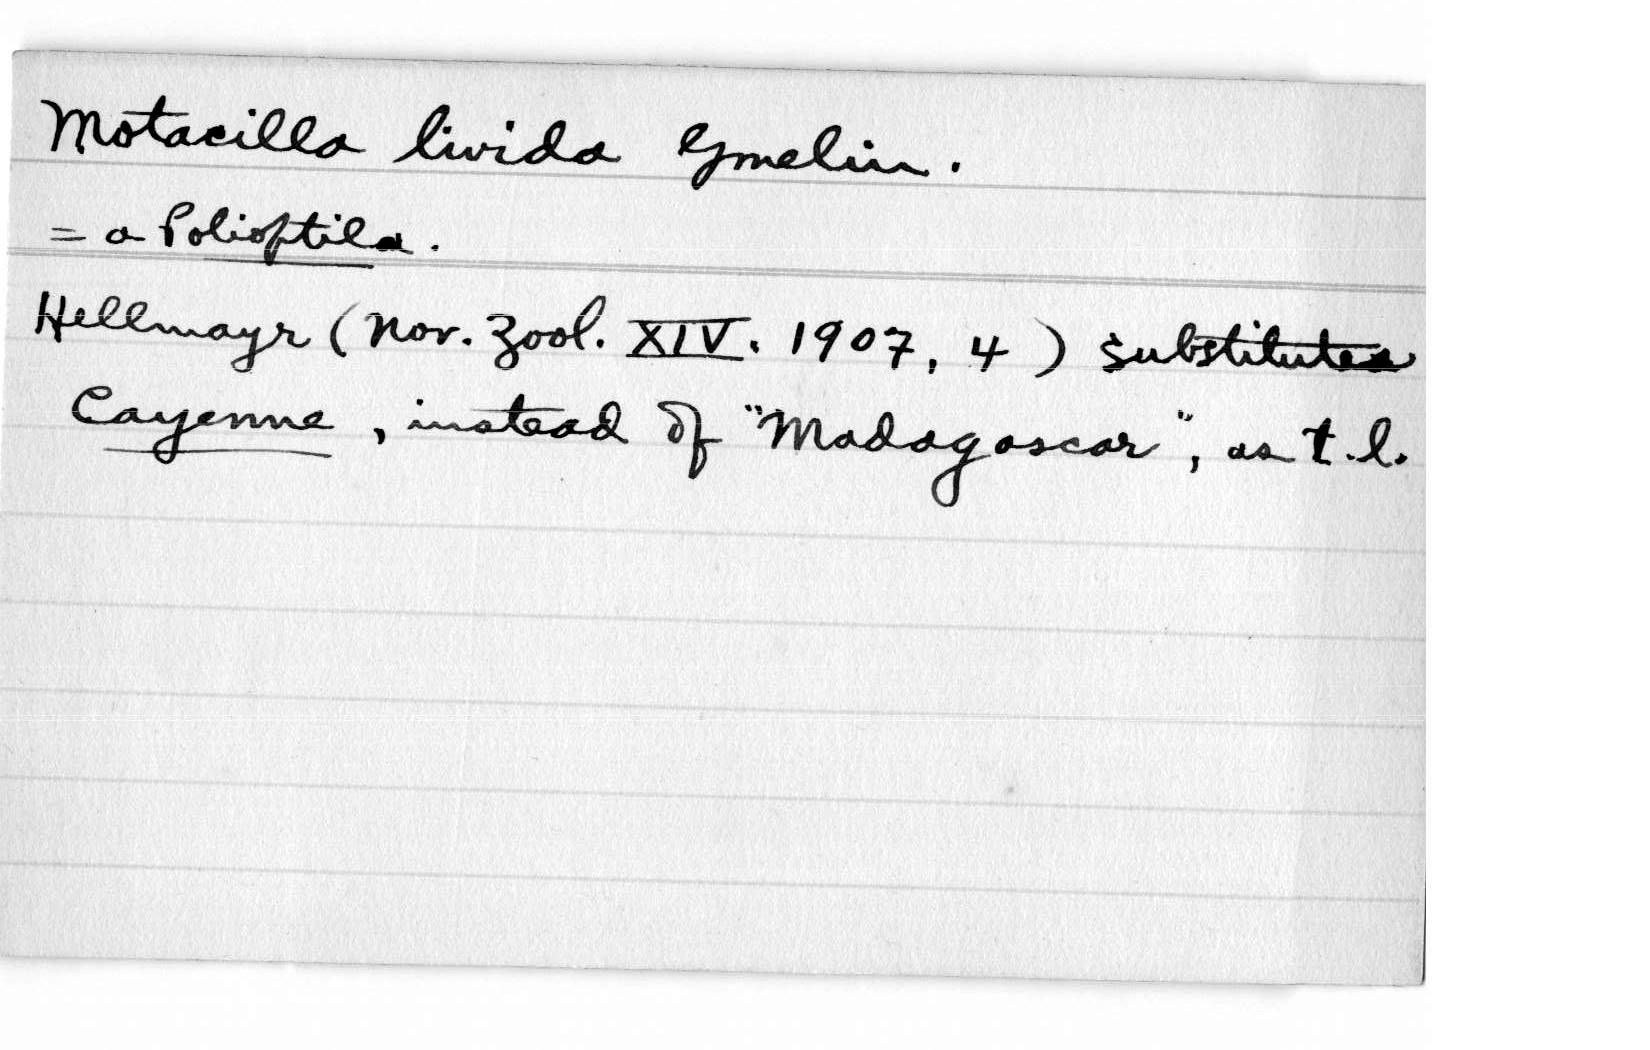 Motacilla livida Gmelin.
= a Polioptila.
Hellmayr (Nov. Zool. XIV. 1907, 4) substitutes
Cayenne, instead of "Madagascar", as t.l.